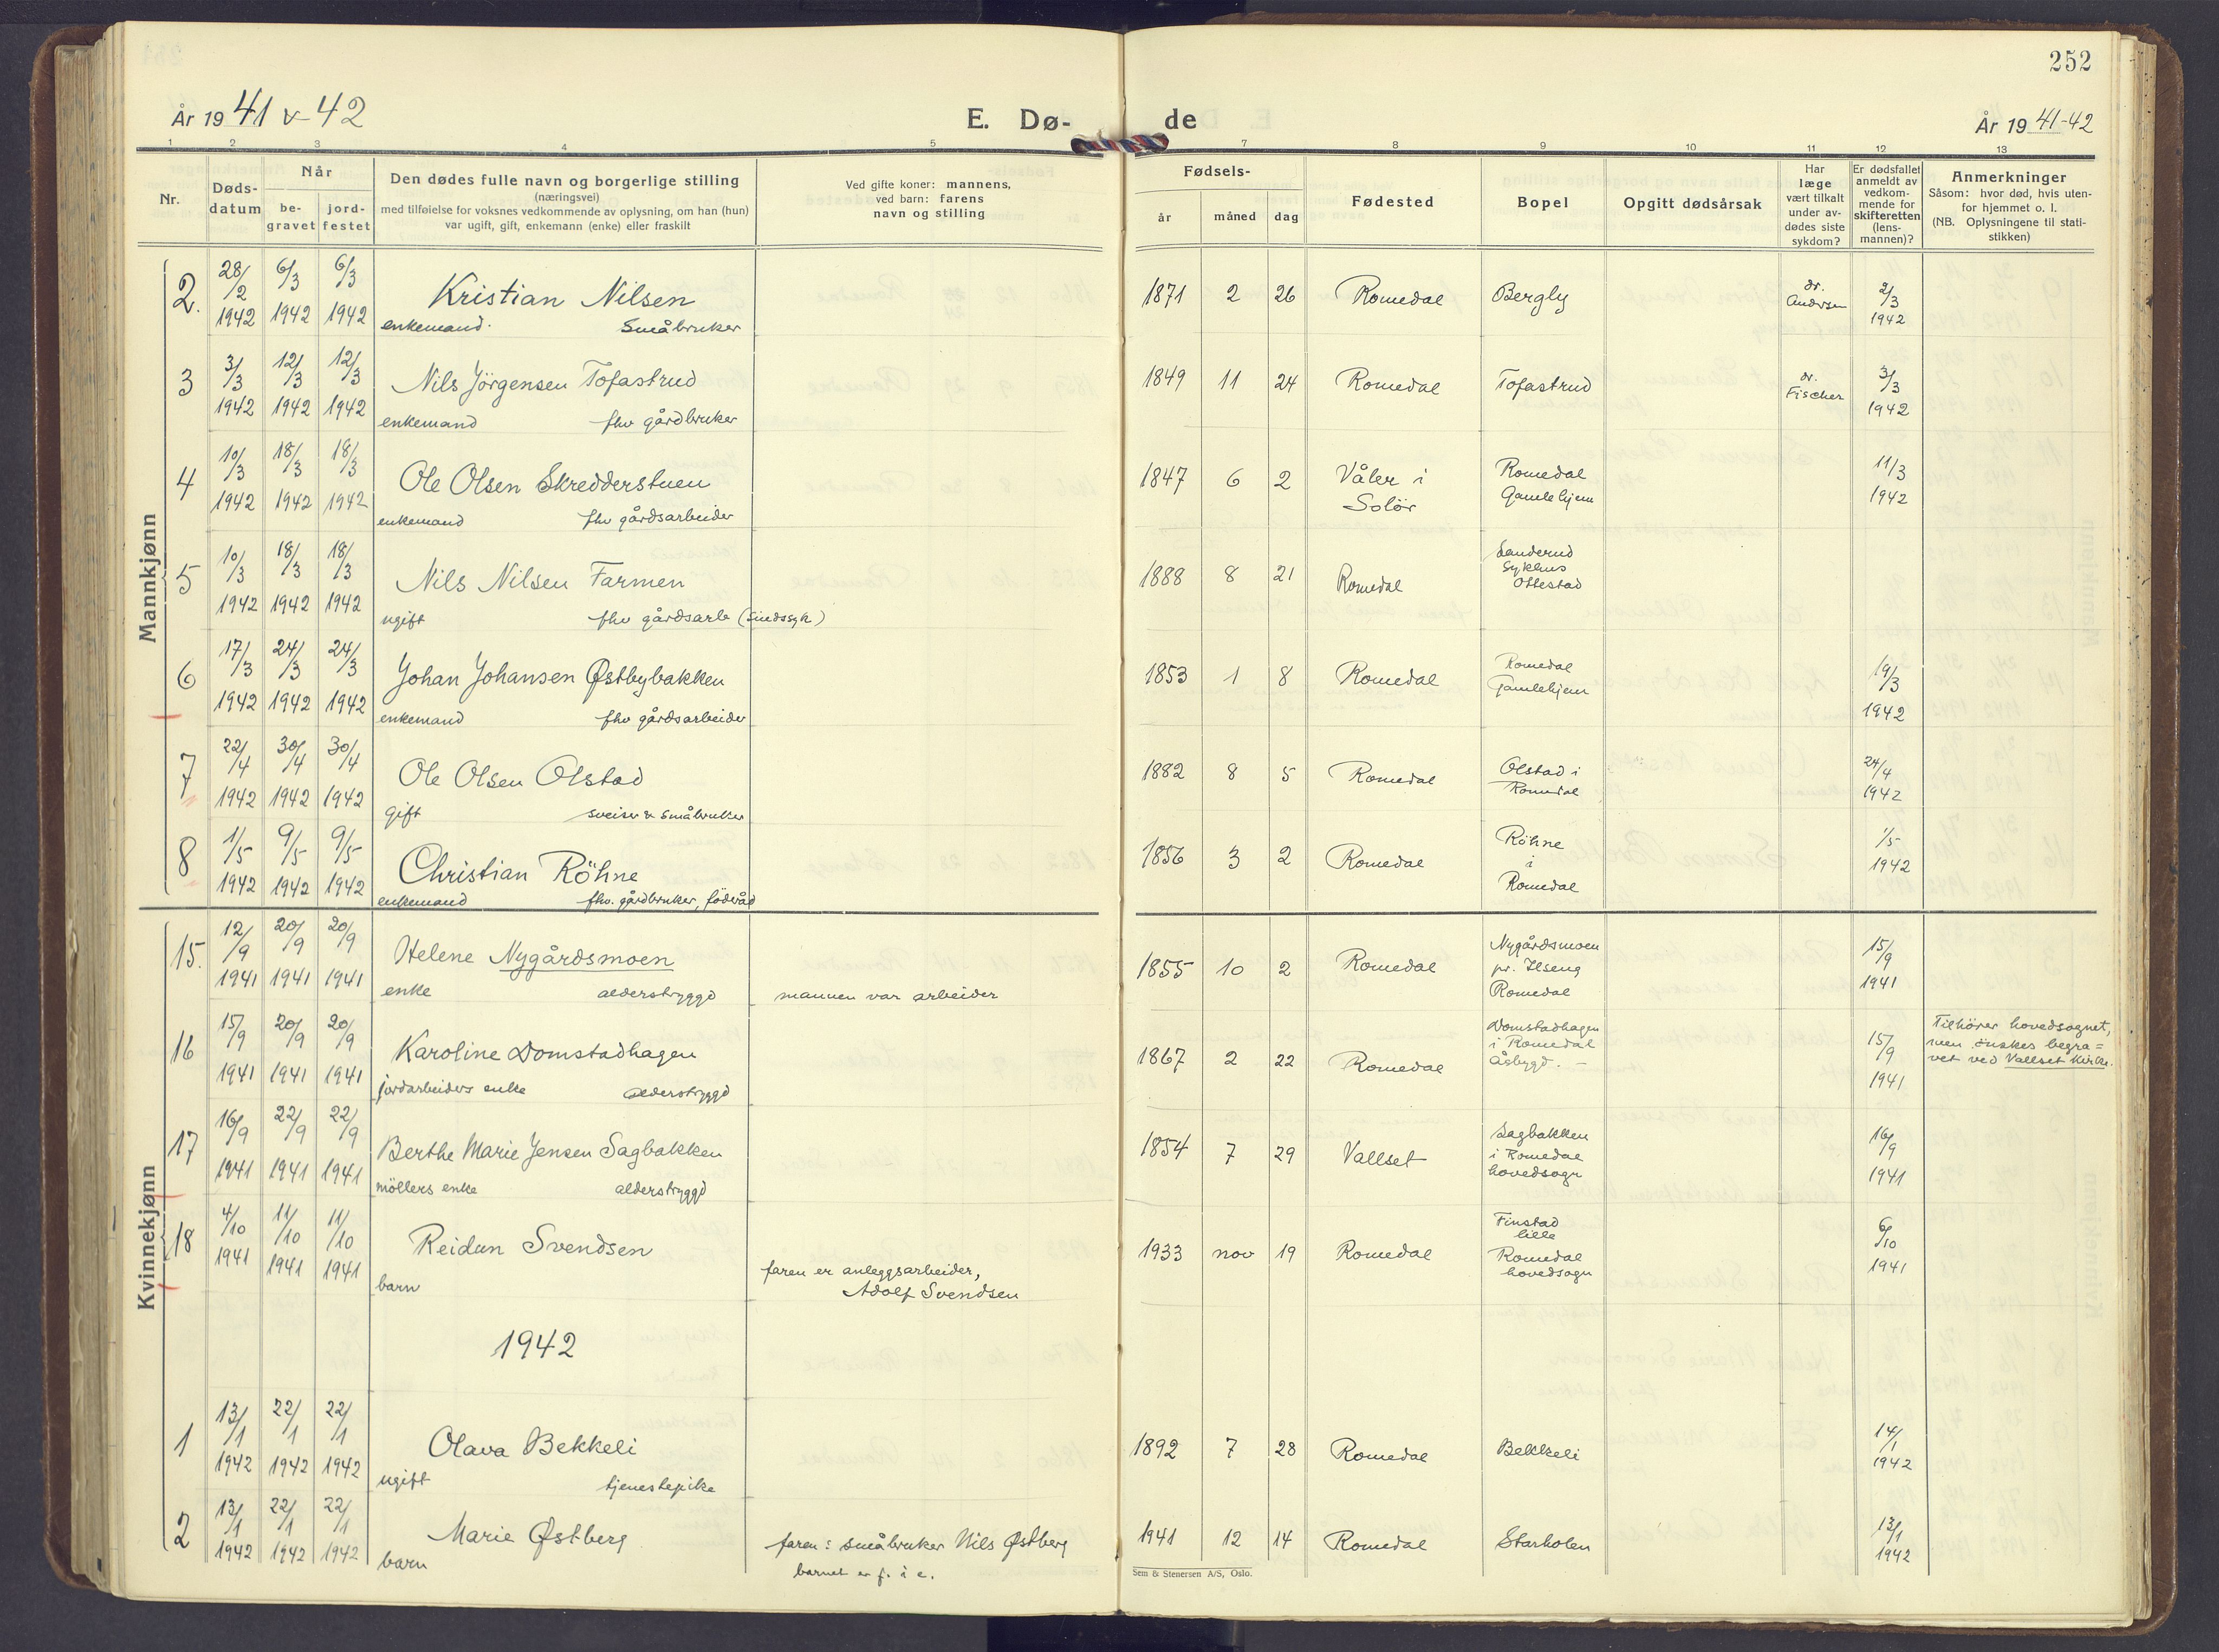 252
År 1941 & 42
E. Dø-
de
År 1941-42
1 2 3 4 5 7 8 9 10 11 12 13
Nr.
Døds-
datum
Når
be-
gravet
jord-
festet
Den dødes fulle navn og borgerlige stilling
(næringsvei)
med tilføielse for voksnes vedkommende av oplysning, om han (hun)
var ugift, gift, enkemann (enke) eller fraskilt
Ved gifte koner: mannens,
ved barn: farens
navn og stilling
Fødsels-
år
måned
dag
Fødested
Bopel
Opgitt dødsårsak
Har
læge
vært tilkalt
under av-
dødes siste
sykdom?
Er dødsfallet
anmeldt av
vedkom-
mende for
skifteretten
(lens-
mannen)?
Anmerkninger
Såsom: hvor død, hvis uten-
for hjemmet o. l.
(NB. Oplysningene til stati-
stikken)
Mannkjønn
2. 28/2 1942 6/3 1942 6/3 1942 Kristian Nilsen
enkemand. Småbruker
1871 2 26 Romedal Bergly dr. Andersen 2/3 1942
3 3/3 1942 12/3 1942 12/3 1942 Nils Jörgensen Tofastrud
enkemand fhv gårdbruker
1849 11 24 Romedal Tofastrud dr. Fischer 3/3 1942
4 10/3 1942 18/3 1942 18/3 1942 Ole Olsen Skredderstuen
enkemand fhv gårdsarbeider
1847 6 2 Våler i Solör Romedal Gamlehjem 11/3 1942
5 10/3 1942 18/3 1942 18/3 1942 Nils Nilsen Farmen
ugift fhv gårdsarb (sindssyk)
1888 8 21 Romedal Sanderud Sykehus Ottestad
6 17/3 1942 24/3 1942 24/3 1942 Johan Johansen Østbybakken
enkemand fhv gårdsarbeider
1853 1 8 Romedal Romedal Gamlehjem 19/3 1942
7 22/4 1942 30/4 1942 30/4 1942 Ole Olsen Olstad
gift sveiser & småbruker
1882 8 5 Romedal Olstad i Romedal 24/4 1942
8 1/5 1942 9/5 1942 9/5 1942 Christian Röhne
enkemand fhv. gårdbruker, föderåd
1856 3 2 Romedal Röhne i Romedal 1/5 1942
Kvinnekjønn
15. 12/9 1941 20/9 1941 20/9 1941 Helene Nygårdsmoen
enke alderstryggd mannen var arbeider
1855 10 2 Romedal Nygårdsmoen pr. Ilseng Romedal 15/9 1941
16 15/9 1941 20/9 1941 20/9 1941 Karoline Domstadhagen
jordarbeiders enke alderstryggd
1867 2 22 Romedal Domstadhagen i Romedal Åsbygd. - 15/9 1941
Tilhörer hovedsognet,
men önskes begra=
vet ved Vallset Kirke.
17 16/9 1941 22/9 1941 22/9 1941 Berthe Marie Jensen Sagbakken
möllers enke alderstryggd
1854 7 29 Vallset Sagbakken i Romedal hovedsogn 16/9 1941
18 4/10 1941 11/10 1941 11/10 1941 Reidun Svendsen
barn faren er anleggsarbeider,
Adolf Svendsen
1933 nov 19 Romedal Finstad lille Romedal hovedsogn 6/10 1941
1942
1 13/1 1942 22/1 1942 22/1 1942 Olava Bekkeli
ugift tjenestepike
1892 7 28 Romedal Bekkeli 14/1 1942
2 13/1 1942 22/1 1942 22/1 1942 Marie Østberg
barn faren: småbruker Nils Østberg
barnet er f. i e.
1941 12 14 Romedal Starholen 13/1 1942
Sem & Stenersen A/S, Oslo.